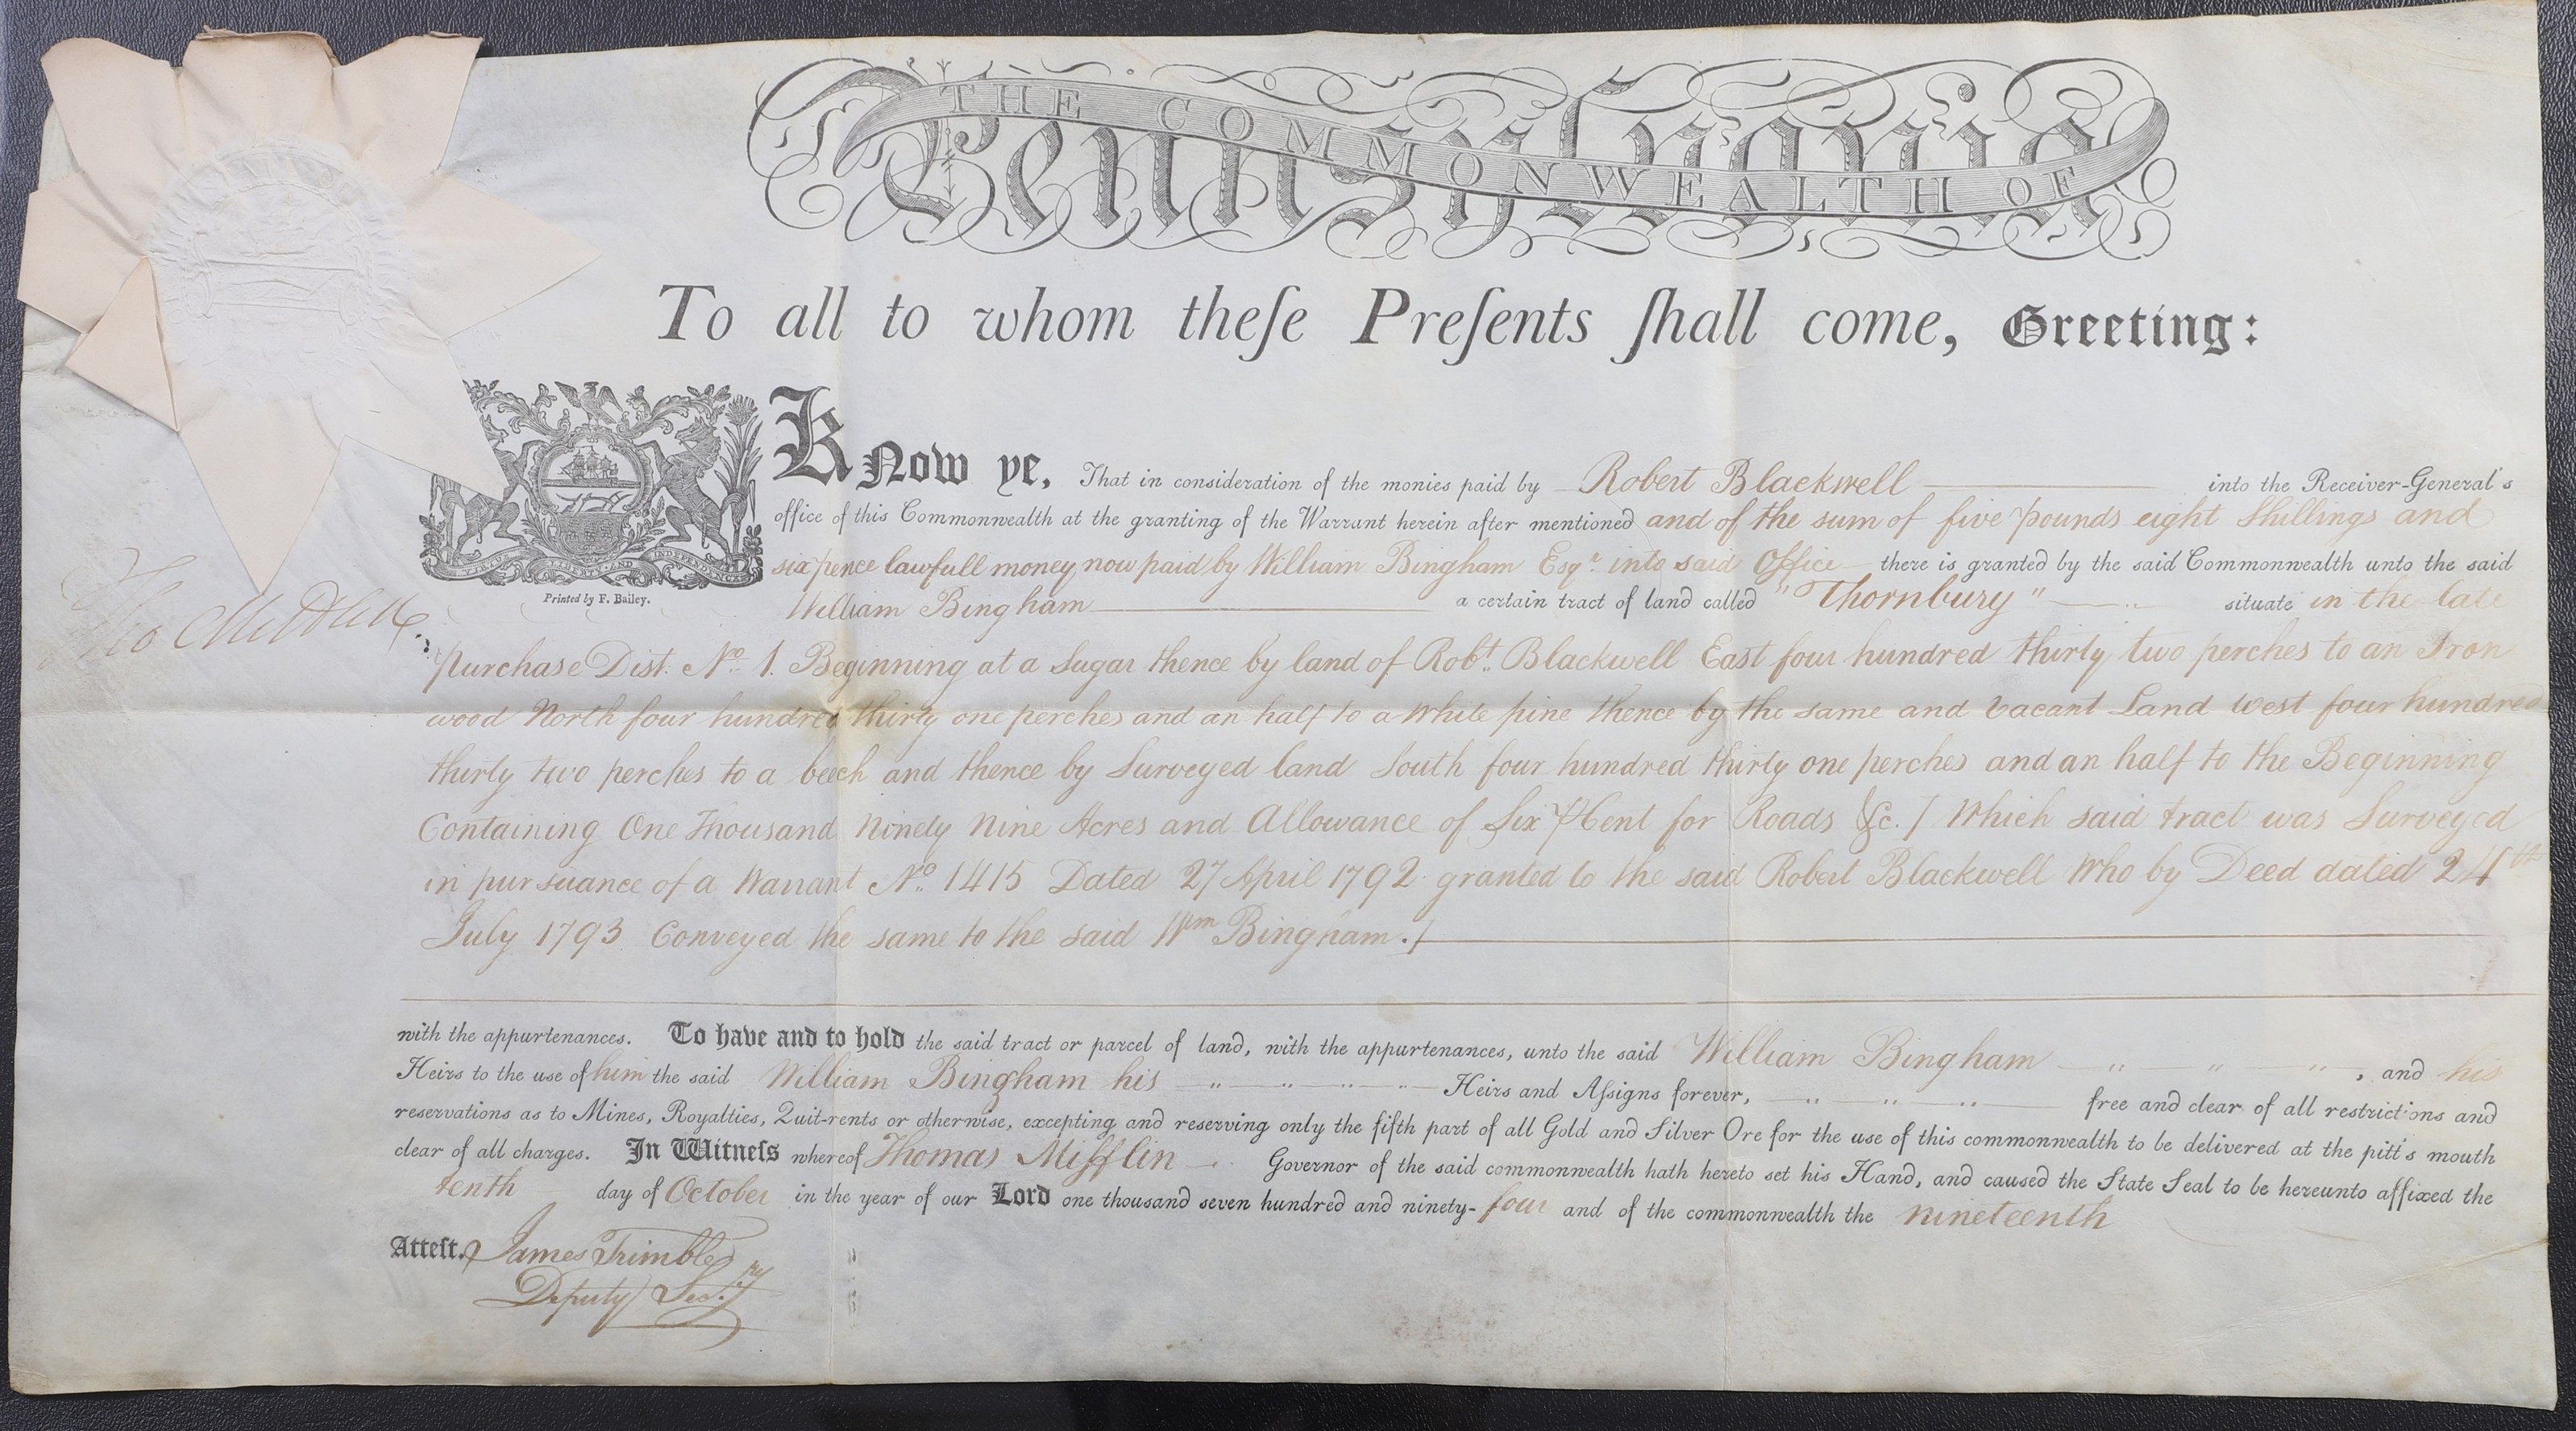 THE COMMONWEALTH OF
Pennsylvania
To all to whom theſe Preſents ſhall come, Greeting:
KNow ye, That in consideration of the monies paid by Robert Blackwell into the Receiver-General's
office of this Commonwealth at the granting of the Warrant herein after mentioned and of the sum of five pounds eight Shillings and
six pence lawfull money now paid by William Bingham Esqr. into said Office there is granted by the said Commonwealth unto the said
William Bingham a certain tract of land called "Thornbury" situate in the late
VIRTUE LIBERTY AND INDEPENDENCE
Printed by F. Bailey.
Tho Mifflin
Purchase Dist: No. 1. Beginning at a Sugar thence by land of Robt. Blackwell East four hundred thirty two perches to an Iron
wood North four hundred thirty one perches and an half to a White pine thence by the same and Vacant Land West four hundred
thirty two perches to a beech and thence by Surveyed land South four hundred thirty one perches and an half to the Beginning
Containing One Thousand Ninety Nine Acres and Allowance of Six ⅌ Cent for Roads &c. / Which said tract was Surveyed
in pursuance of a Warrant No. 1415 Dated 27 April 1792 granted to the said Robert Blackwell Who by Deed dated 24th
July 1793 Conveyed the same to the said Wm Bingham ./
with the appurtenances. To have and to hold the said tract or parcel of land, with the appurtenances, unto the said William Bingham , and his
Heirs to the use of him the said William Bingham his Heirs and Aſsigns forever, free and clear of all restrictions and
reservations as to Mines, Royalties, Quit-rents or otherwise, excepting and reserving only the fifth part of all Gold and Silver Ore for the use of this commonwealth to be delivered at the pitt's mouth
clear of all charges. In Witneſs whereof Thomas Mifflin Governor of the said commonwealth hath hereto set his Hand, and caused the State Seal to be hereunto affixed the
tenth day of October in the year of our Lord one thousand seven hundred and ninety- four and of the commonwealth the nineteenth
Atteſt. James Trimble
Deputy Secry